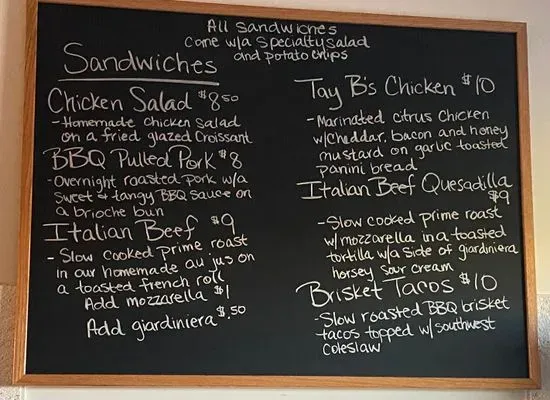 All Sandwiches
Come w/a Specialty salad
and potato chips
Sandwiches
Chicken Salad $8.50
- Homemade chicken salad
on a fried glazed Croissant
BBQ Pulled Pork $8
- Overnight roasted pork w/a
sweet & tangy BBQ sauce on
a brioche bun
Italian Beef $9
- Slow cooked prime roast
in our homemade au'jus on
a toasted french roll
Add mozzarella $1
Add giardiniera $.50
Tay B's Chicken $10
- Marinated citrus chicken
w/cheddar, bacon and honey
mustard on garlic toasted
panini bread
Italian Beef Quesadilla
$9
- Slow cooked prime roast
w/mozzarella in a toasted
tortilla w/a side of giardiniera
horsey sour cream
Brisket Tacos $10
- Slow roasted BBQ brisket
tacos topped w/southwest
coleslaw